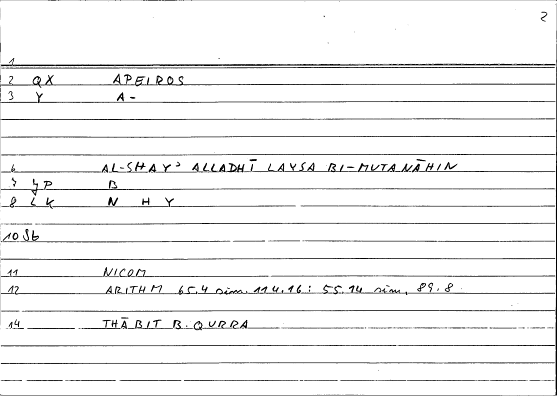 2
1
2 QX APEIROS
3 Y A-
6 AL-SHAYʾ ALLADHĪ LAYSA BI-MUTANĀHIN
7 JP B
8 LK N H Y
10 Sb
11 NICOM
12 ARITHM 65.4 sim. 114.16: 55.14 sim, 89.8.
14 THĀBIT B. QURRA